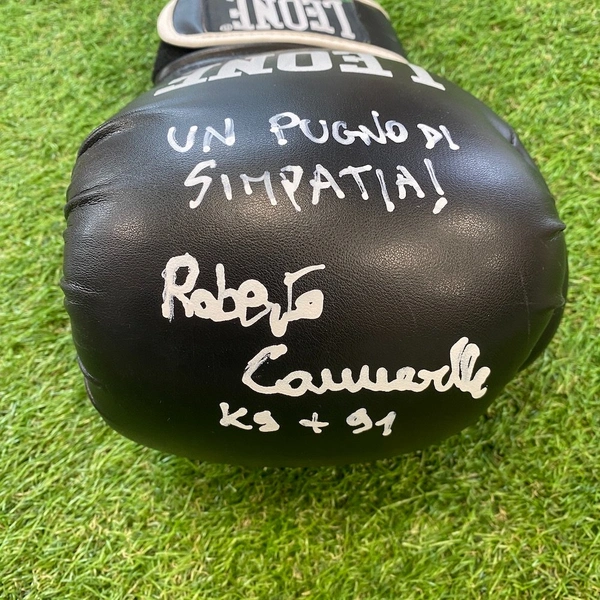 LEONE
LEONE
UN PUGNO DI
SIMPATIA!
Roberto
Cammarelle
Kg + 91